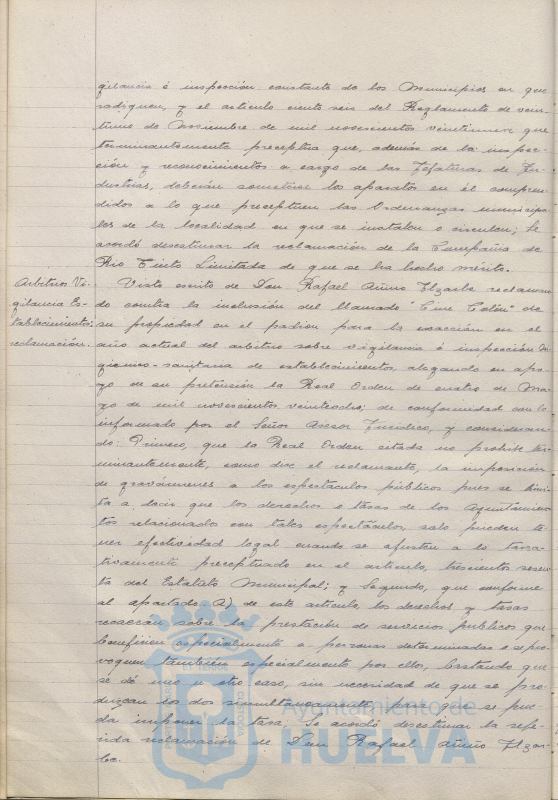 gilancia é inspección constante de los Municipios en que
radiquen, y el artículo ciento seis del Reglamento de vein-
tiuno de Noviembre de mil novecientos veintinueve que
terminantemente preceptua que, además de la inspec-
ción y reconocimientos a cargo de las Jefaturas de In-
dustrias, deberán someterse los aparatos en él compren-
didos a lo que preceptuen las Ordenanzas municipa-
les de la localidad en que se instalen o circulen; Se
acordó desestimar la reclamación de la Compañia de
Rio Tinto Limitada de que se ha hecho mérito.
Arbitrios Vi-
gilancia Es-
tablecimientos,
reclamación.
Visto escrito de Don Rafael reclaman-
do contra la inclusión del llamado "Cine Colón" de
su propiedad en el padrón para la exacción en el
año actual del arbitrio sobre vigilancia é inspección hi-
gienico-sanitaria de establecimientos, alegando en apo-
yo de su pretensión la Real Orden de cuatro de Ma-
yo de mil novecientos veinteocho; de conformidad con lo
informado por el Señor Asesor Juridico, y consideran-
do: Primero, que la Real Orden citada no prohibe ter-
minantemente, como dice el reclamante, la imposición
de gravámenes a los espectáculos públicos pues se limi-
ta a decir que los derechos o tasas de los Ayuntamien-
tos relacionado con tales espectáculos, solo pueden te-
ner efectividad legal cuando se ajusten a lo taxa-
tivamente preceptuado en el artículo, trescientos sesen-
ta del Estatuto Municipal; y Segundo, que conforme
al apartado A) de este artículo, los derechos y tasas
recaerán sobre la prestación de servicios públicos que
beneficien especialmente a personas determinadas o se pro-
voquen también especialmente por ellos, bastando que
se dé uno u otro caso, sin necesidad de que se pro-
duzcan los dos simultáneamente para que se pue-
da imponer la tasa; Se acordó desestimar la refe-
rida reclamación de Don Rafael
Ayuntamiento de
HUELVA